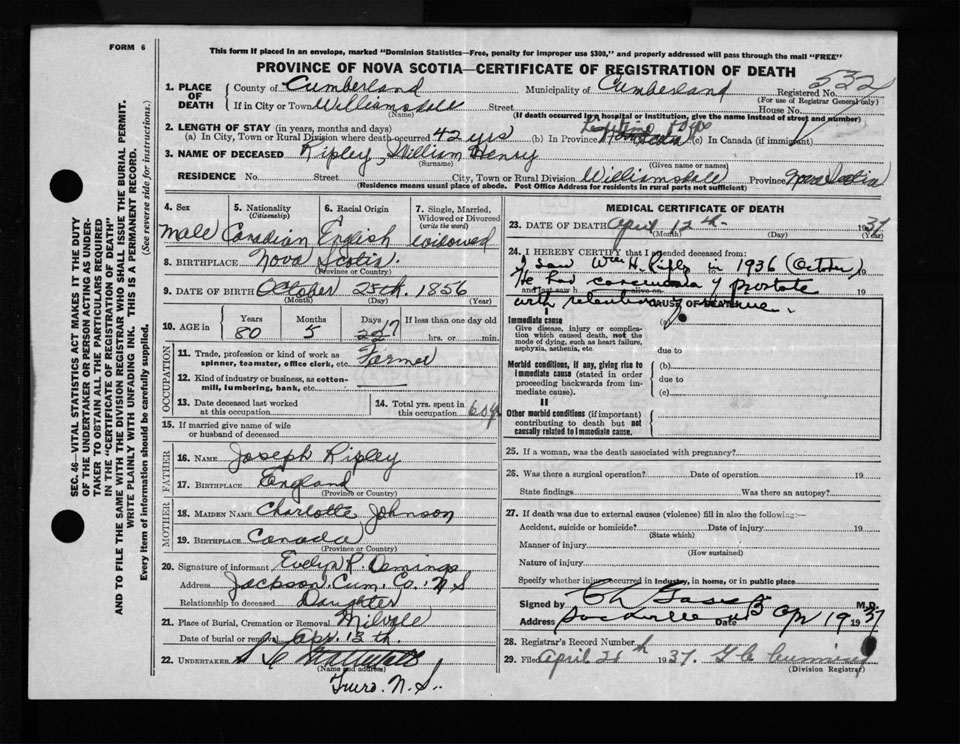 FORM 6
This form if placed in an envelope, marked "Dominion Statistics—Free, penalty for improper use $300," and properly addressed will pass through the mail "FREE"
PROVINCE OF NOVA SCOTIA—CERTIFICATE OF REGISTRATION OF DEATH
532
1. PLACE OF DEATH
County of Cumberland Municipality of Cumberland Registered No.
(For use of Registrar General only)
If in City or Town Williamsdale Street House No.
(Name) (If death occurred in a hospital or institution, give the name instead of street and number)
2. LENGTH OF STAY (in years, months and days)
(a) In City, Town or Rural Division where death occurred 42 yrs (b) In Province Lifetime (c) In Canada (if immigrant)
3. NAME OF DECEASED Ripley, William Henry
(Surname) (Given name or names)
RESIDENCE No. Street City, Town or Rural Division Williamsdale Province Nova Scotia
(Residence means usual place of abode. Post Office Address for residents in rural parts not sufficient)
4. Sex 5. Nationality (Citizenship) 6. Racial Origin 7. Single, Married, Widowed or Divorced (write the word)
Male Canadian English widowed
8. BIRTHPLACE Nova Scotia.
(Province or Country)
9. DATE OF BIRTH October 25th. 1856
(Month) (Day) (Year)
10. AGE in Years Months Days If less than one day old
80 5 17 hrs. or min.
OCCUPATION
11. Trade, profession or kind of work as spinner, teamster, office clerk, etc. Farmer
12. Kind of industry or business, as cotton-mill, lumbering, bank, etc.
13. Date deceased last worked at this occupation
14. Total yrs. spent in this occupation 60 yrs
15. If married give name of wife or husband of deceased
FATHER
16. NAME Joseph Ripley
17. BIRTHPLACE England
(Province or Country)
MOTHER
18. MAIDEN NAME Charlotte Johnson
19. BIRTHPLACE Canada
(Province or Country)
20. Signature of informant Evelyn R. Demings
Address Jackson. Cum. Co. N.S
Relationship to deceased Daughter
21. Place of Burial, Cremation or Removal Milvale
Date of burial or removal Apr. 13th.
22. UNDERTAKER
(Name and address)
Truro. N.S.
MEDICAL CERTIFICATE OF DEATH
23. DATE OF DEATH April 12th 1937
(Month) (Day) (Year)
24. I HEREBY CERTIFY that I attended deceased from:
I saw Wm H. Ripley in 1936 (October) 19
He had carcinoma of prostate
and last saw h alive on 19
with retention of urine.
CAUSE OF DEATH
I
Immediate cause
Give disease, injury or complication which caused death, not the mode of dying, such as heart failure, asphyxia, asthenia, etc.
(a)
due to
Morbid conditions, if any, giving rise to immediate cause (stated in order proceeding backwards from immediate cause).
(b)
due to
(c)
II
Other morbid conditions (if important) contributing to death but not causally related to immediate cause.
25. If a woman, was the death associated with pregnancy?
26. Was there a surgical operation? Date of operation 19
State findings Was there an autopsy?
27. If death was due to external causes (violence) fill in also the following:—
Accident, suicide or homicide? Date of injury 19
(State which)
Manner of injury
(How sustained)
Nature of injury
Specify whether injury occurred in industry, in home, or in public place
Signed by M.D.
Address Date 13 Apr 1937
28. Registrar's Record Number
29. Filed April 21 1937.
(Division Registrar)
SEC. 46—VITAL STATISTICS ACT MAKES IT THE DUTY
OF THE UNDERTAKER OR PERSON ACTING AS UNDER-
TAKER TO OBTAIN ALL THE PARTICULARS REQUIRED
IN THE "CERTIFICATE OF REGISTRATION OF DEATH"
AND TO FILE THE SAME WITH THE DIVISION REGISTRAR WHO SHALL ISSUE THE BURIAL PERMIT.
WRITE PLAINLY WITH UNFADING INK. THIS IS A PERMANENT RECORD.
Every item of information should be carefully supplied. (See reverse side for instructions.)